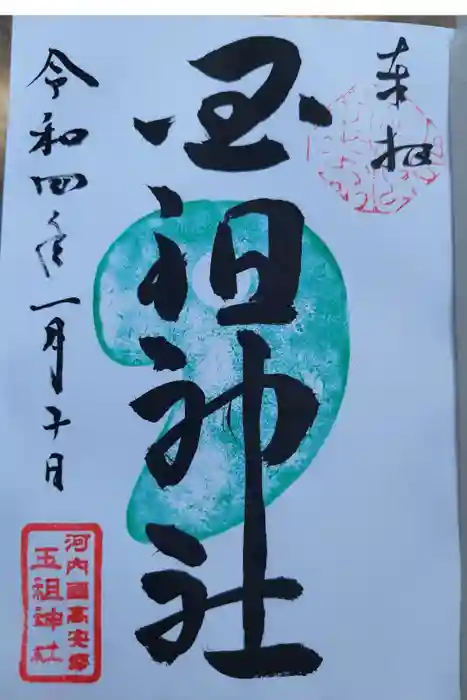 奉拝
玉祖神社
令和四年一月
河内國高安郡
玉祖神社